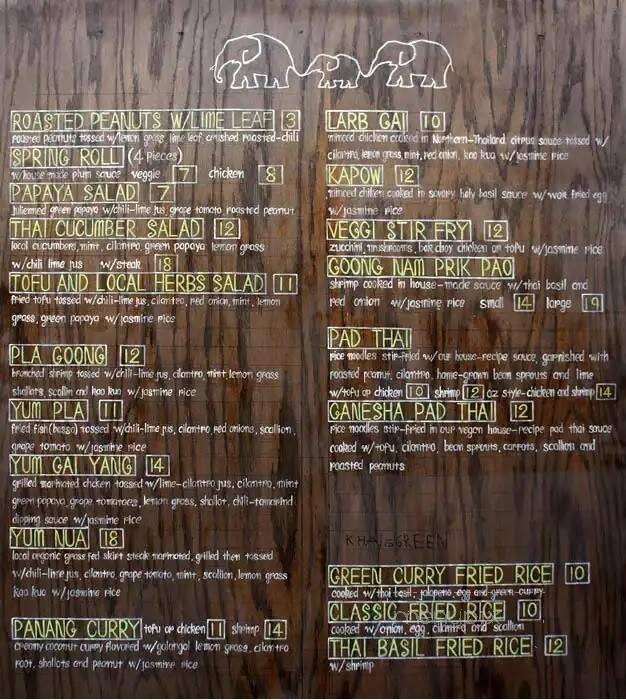 ROASTED PEANUTS W/LIME LEAF 3
roasted peanuts tossed w/lemon grass, lime leaf crushed roasted-chili
SPRING ROLL (4 pieces)
w/house made plum sauce veggie 7 chicken 8
PAPAYA SALAD 7
julienned green papaya w/chili-lime jus, grape tomato, roasted peanut
THAI CUCUMBER SALAD 12
local cucumbers, mint, cilantro, green papaya lemon grass
w/chili lime jus w/steak 18
TOFU AND LOCAL HERBS SALAD 11
fried tofu tossed w/chili-lime jus, cilantro, red onion, mint, lemon
grass, green papaya w/jasmine rice
PLA GOONG 12
blanched shrimp tossed w/chili-lime jus, cilantro, mint, lemon grass
shallots, scallion and kao kua w/jasmine rice
YUM PLA 11
fried fish(basa) tossed w/chili-lime jus, cilantro, red onions, scallion,
grape tomato w/jasmine rice
YUM GAI YANG 14
grilled marinated chicken tossed w/lime-cilantro jus, cilantro, mint
green papaya, grape tomatoes, lemon grass, shallot, chili-tamarind
dipping sauce w/jasmine rice
YUM NUA 18
local organic grass fed skirt steak marinated, grilled then tossed
w/chili-lime jus, cilantro, grape tomato, mint, scallion, lemon grass
kao kua w/jasmine rice
PANANG CURRY tofu or chicken 11 shrimp 14
creamy coconut curry flavored w/galangal lemon grass, cilantro
root, shallots and peanut w/jasmine rice
LARB GAI 10
minced chicken cooked in Northern-Thailand citrus sauce tossed w/
cilantro, lemon grass, mint, red onion, kao kua w/jasmine rice
KAPOW 12
minced chicken cooked in savory holy basil sauce w/wok fried egg
w/jasmine rice
VEGGI STIR FRY 12
zucchini, mushrooms, bok choy chicken or tofu w/jasmine rice
GOONG NAM PRIK PAO
shrimp cooked in house-made sauce w/thai basil and
red onion w/jasmine rice small 14 large 19
PAD THAI
rice noodles stir-fried w/our house-recipe sauce, garnished with
roasted peanut, cilantro, home-grown bean sprouts and lime
w/tofu or chicken 10 shrimp 12 oz style-chicken and shrimp 14
GANESHA PAD THAI 12
rice noodles stir-fried in our vegan house-recipe pad thai sauce
cooked w/tofu, cilantro, bean sprouts, carrots, scallion and
roasted peanuts
GREEN CURRY FRIED RICE 10
cooked w/thai basil, jalapeno, egg and green-curry
CLASSIC FRIED RICE 10
cooked w/onion, egg, cilantro and scallion
THAI BASIL FRIED RICE 12
w/shrimp